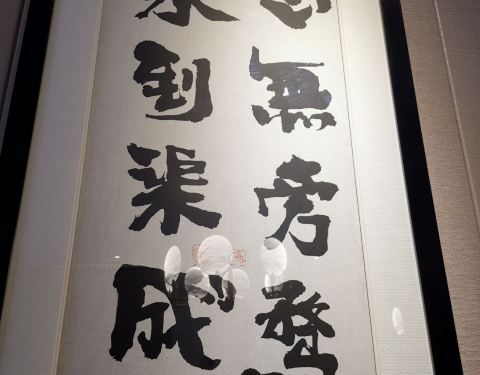 心無旁
水到渠成